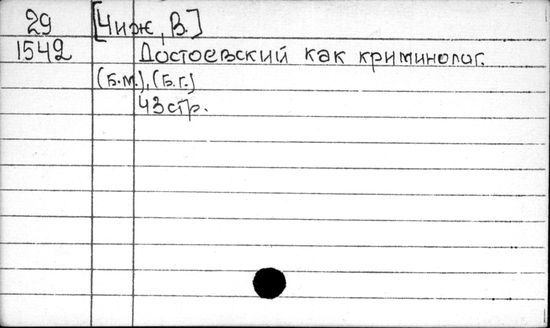 29 [Чиж, В.]
1542 Достоевский как криминолог.
(Б.м.), (Б.г.)
43 стр.